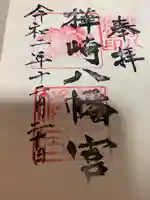 奉拝
樺崎八幡宮
令和二年十一月二十日